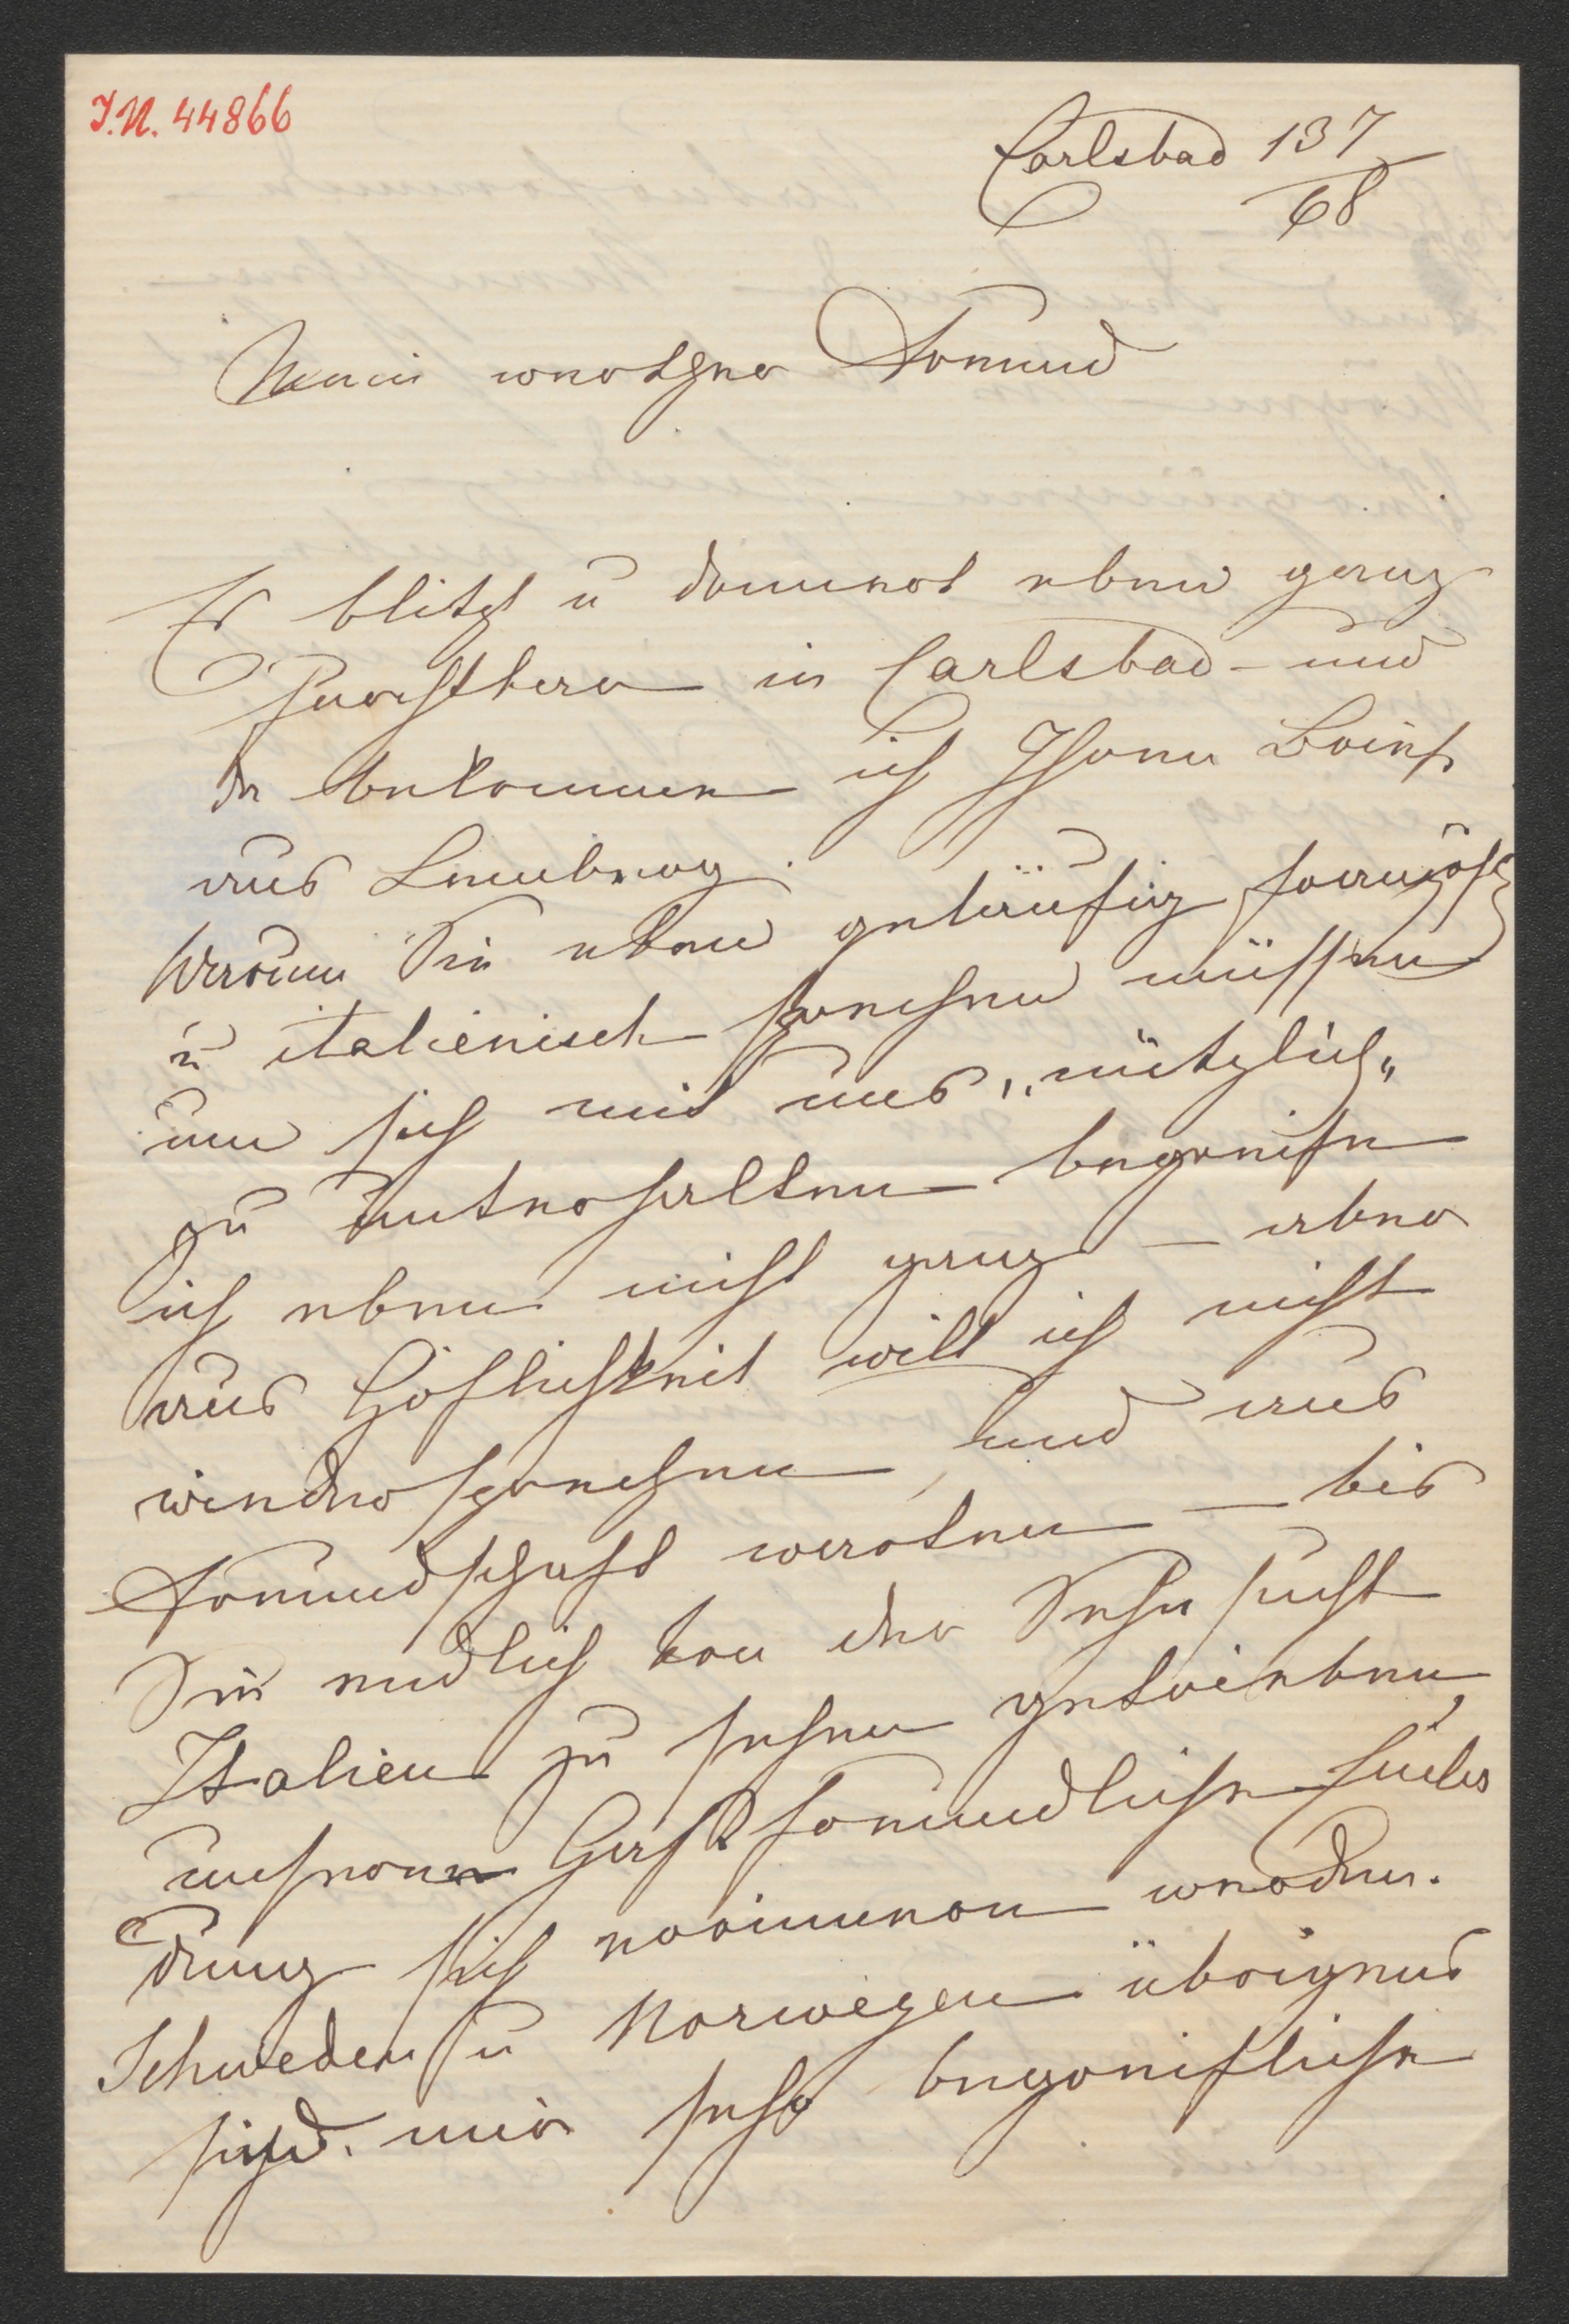 I.N. 44866
Carlsbad 13 7
68
Mein werther Freund
Es blitzt u donnert eben ganz
furchtbar in Carlsbad - und
da bekomme ich Ihren Brief
aus Lemberg.
Warum Sie eben geläufig französ.
u italienisch sprechen müssen
um sich mit uns „nützlich“
zu unterhalten begreife
ich eben nicht ganz – aber
aus Höflichkeit will ich nicht
wiedersprechen, und aus
Freundschaft warten – bis
Sie endlich von der Sehnsucht
Italien zu sehen getrieben,
unserer Gastfreundlichen Einla
dung sich erinnern werden.
Schweden u Norwegen übrigens
sind mir sehr begreifliche